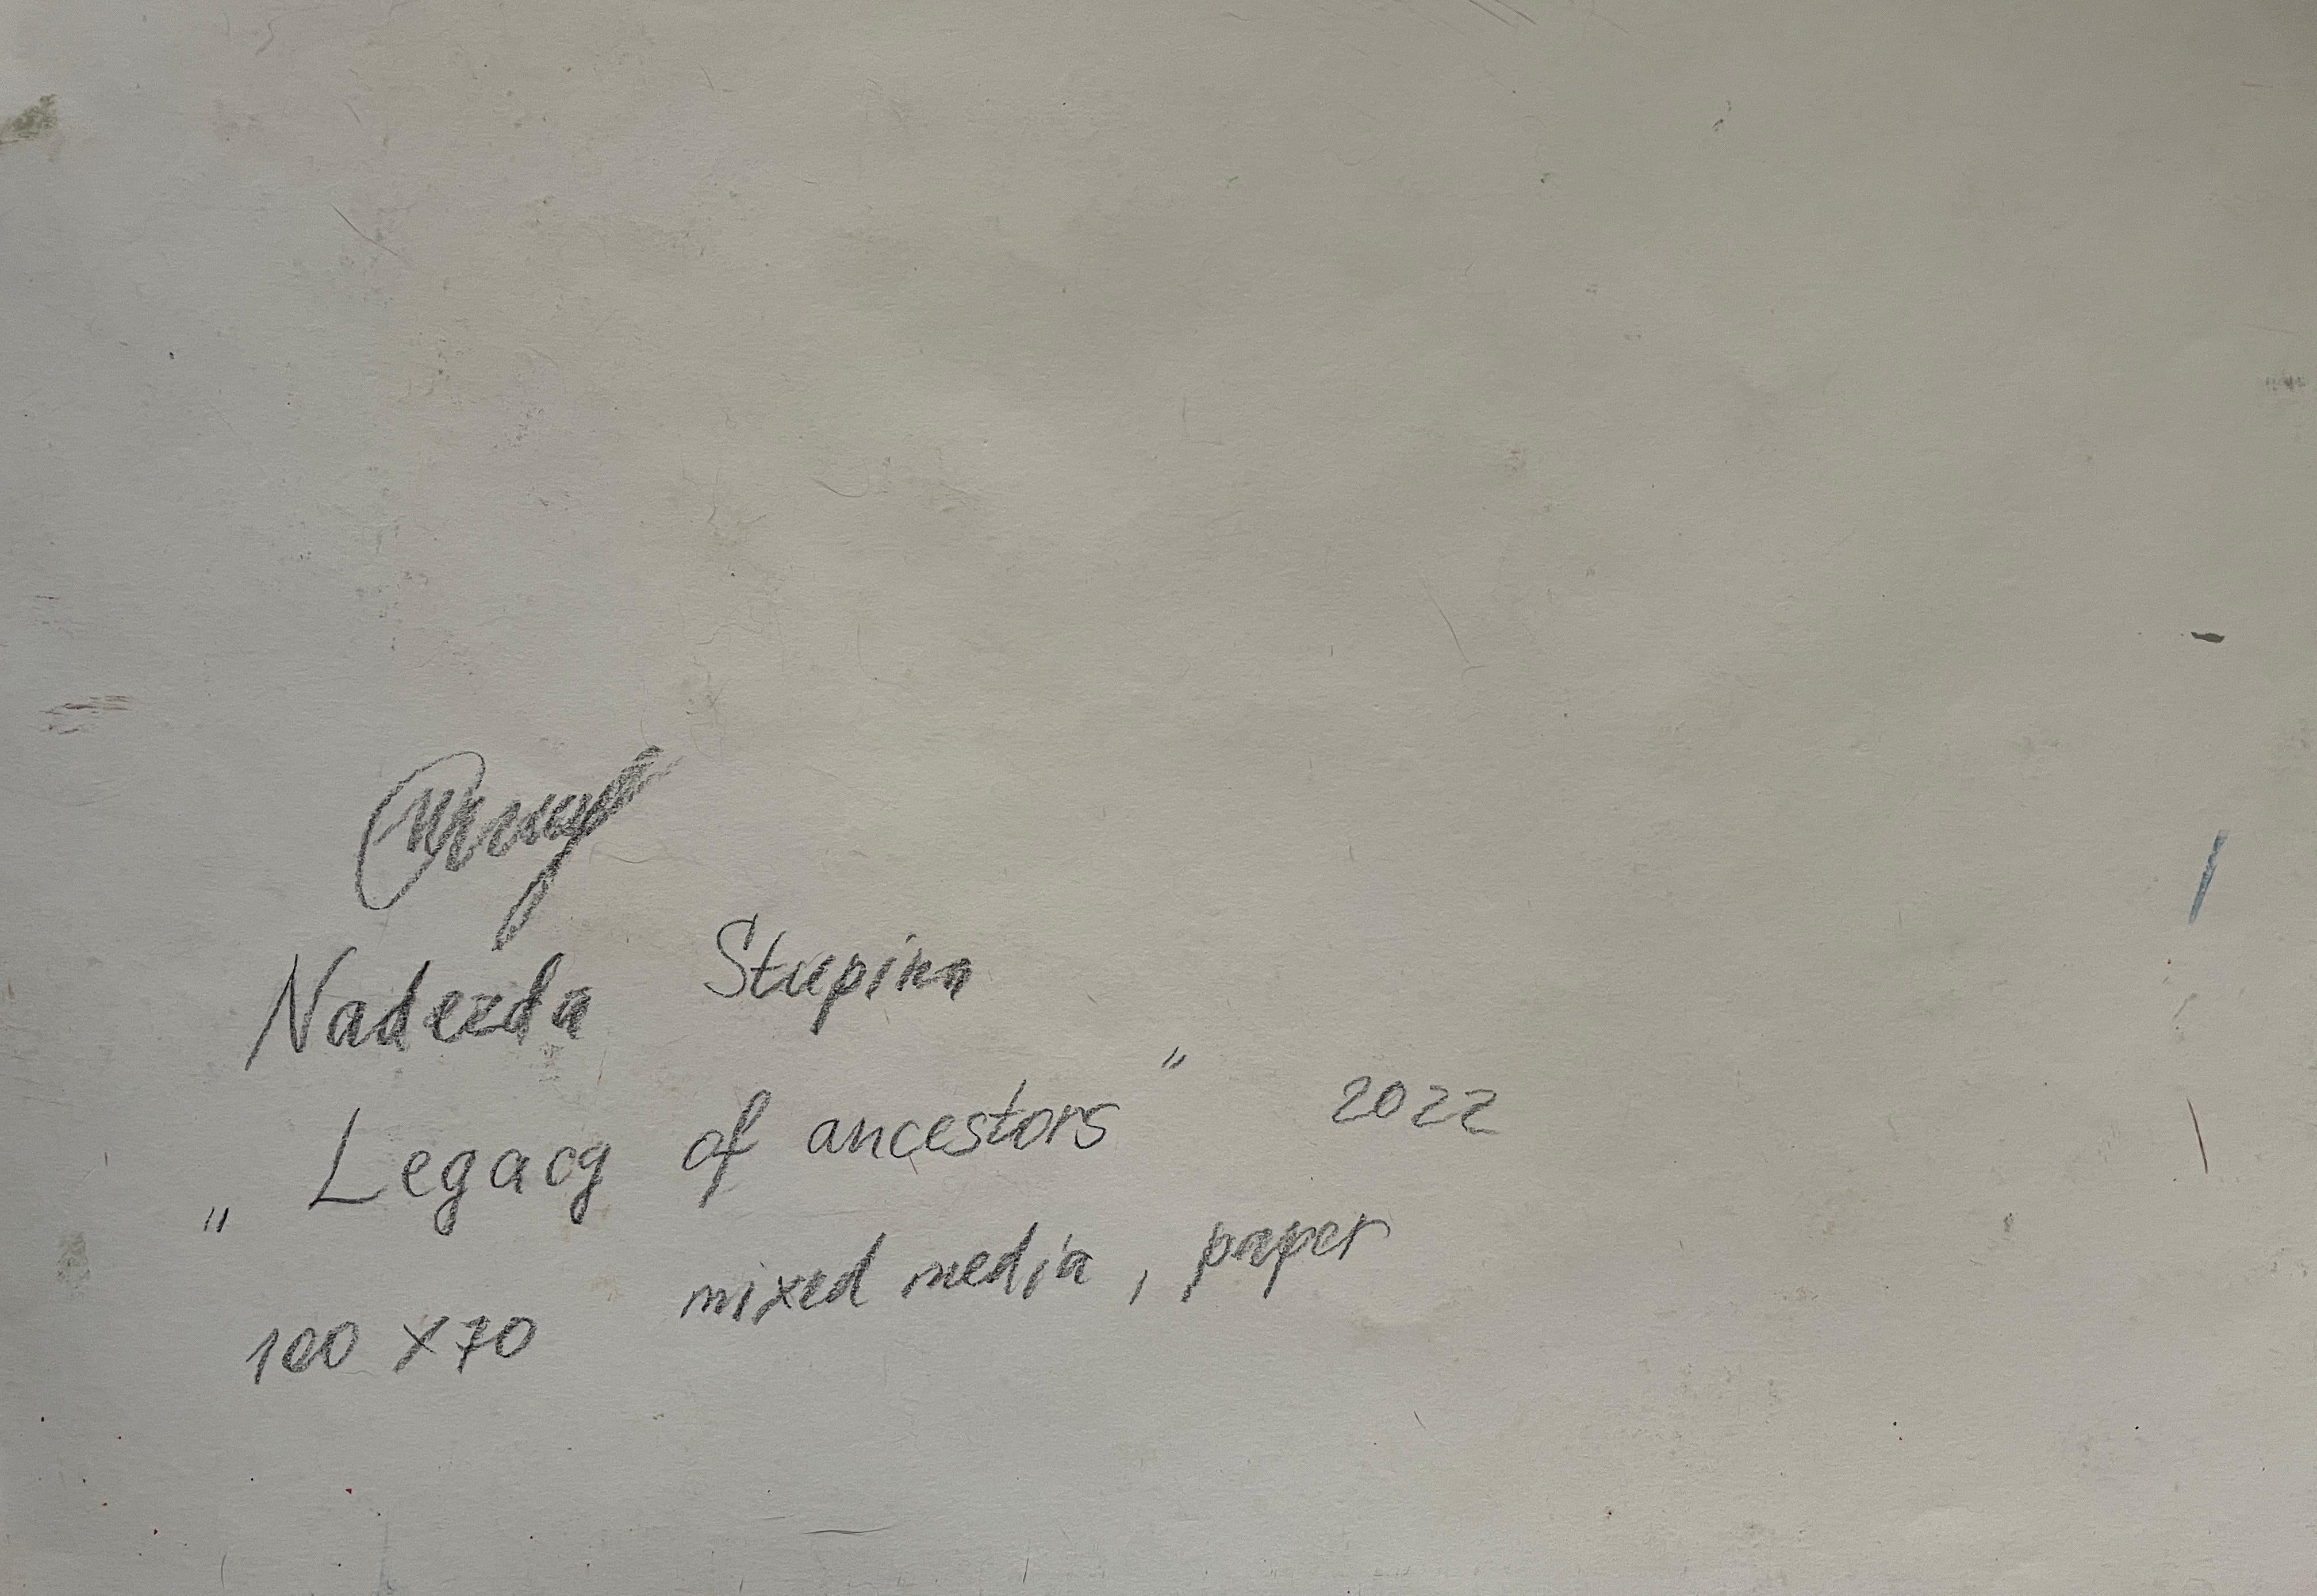 Nadezda Stupina
„Legacy of ancestors" 2022
100 x 70 mixed media, paper